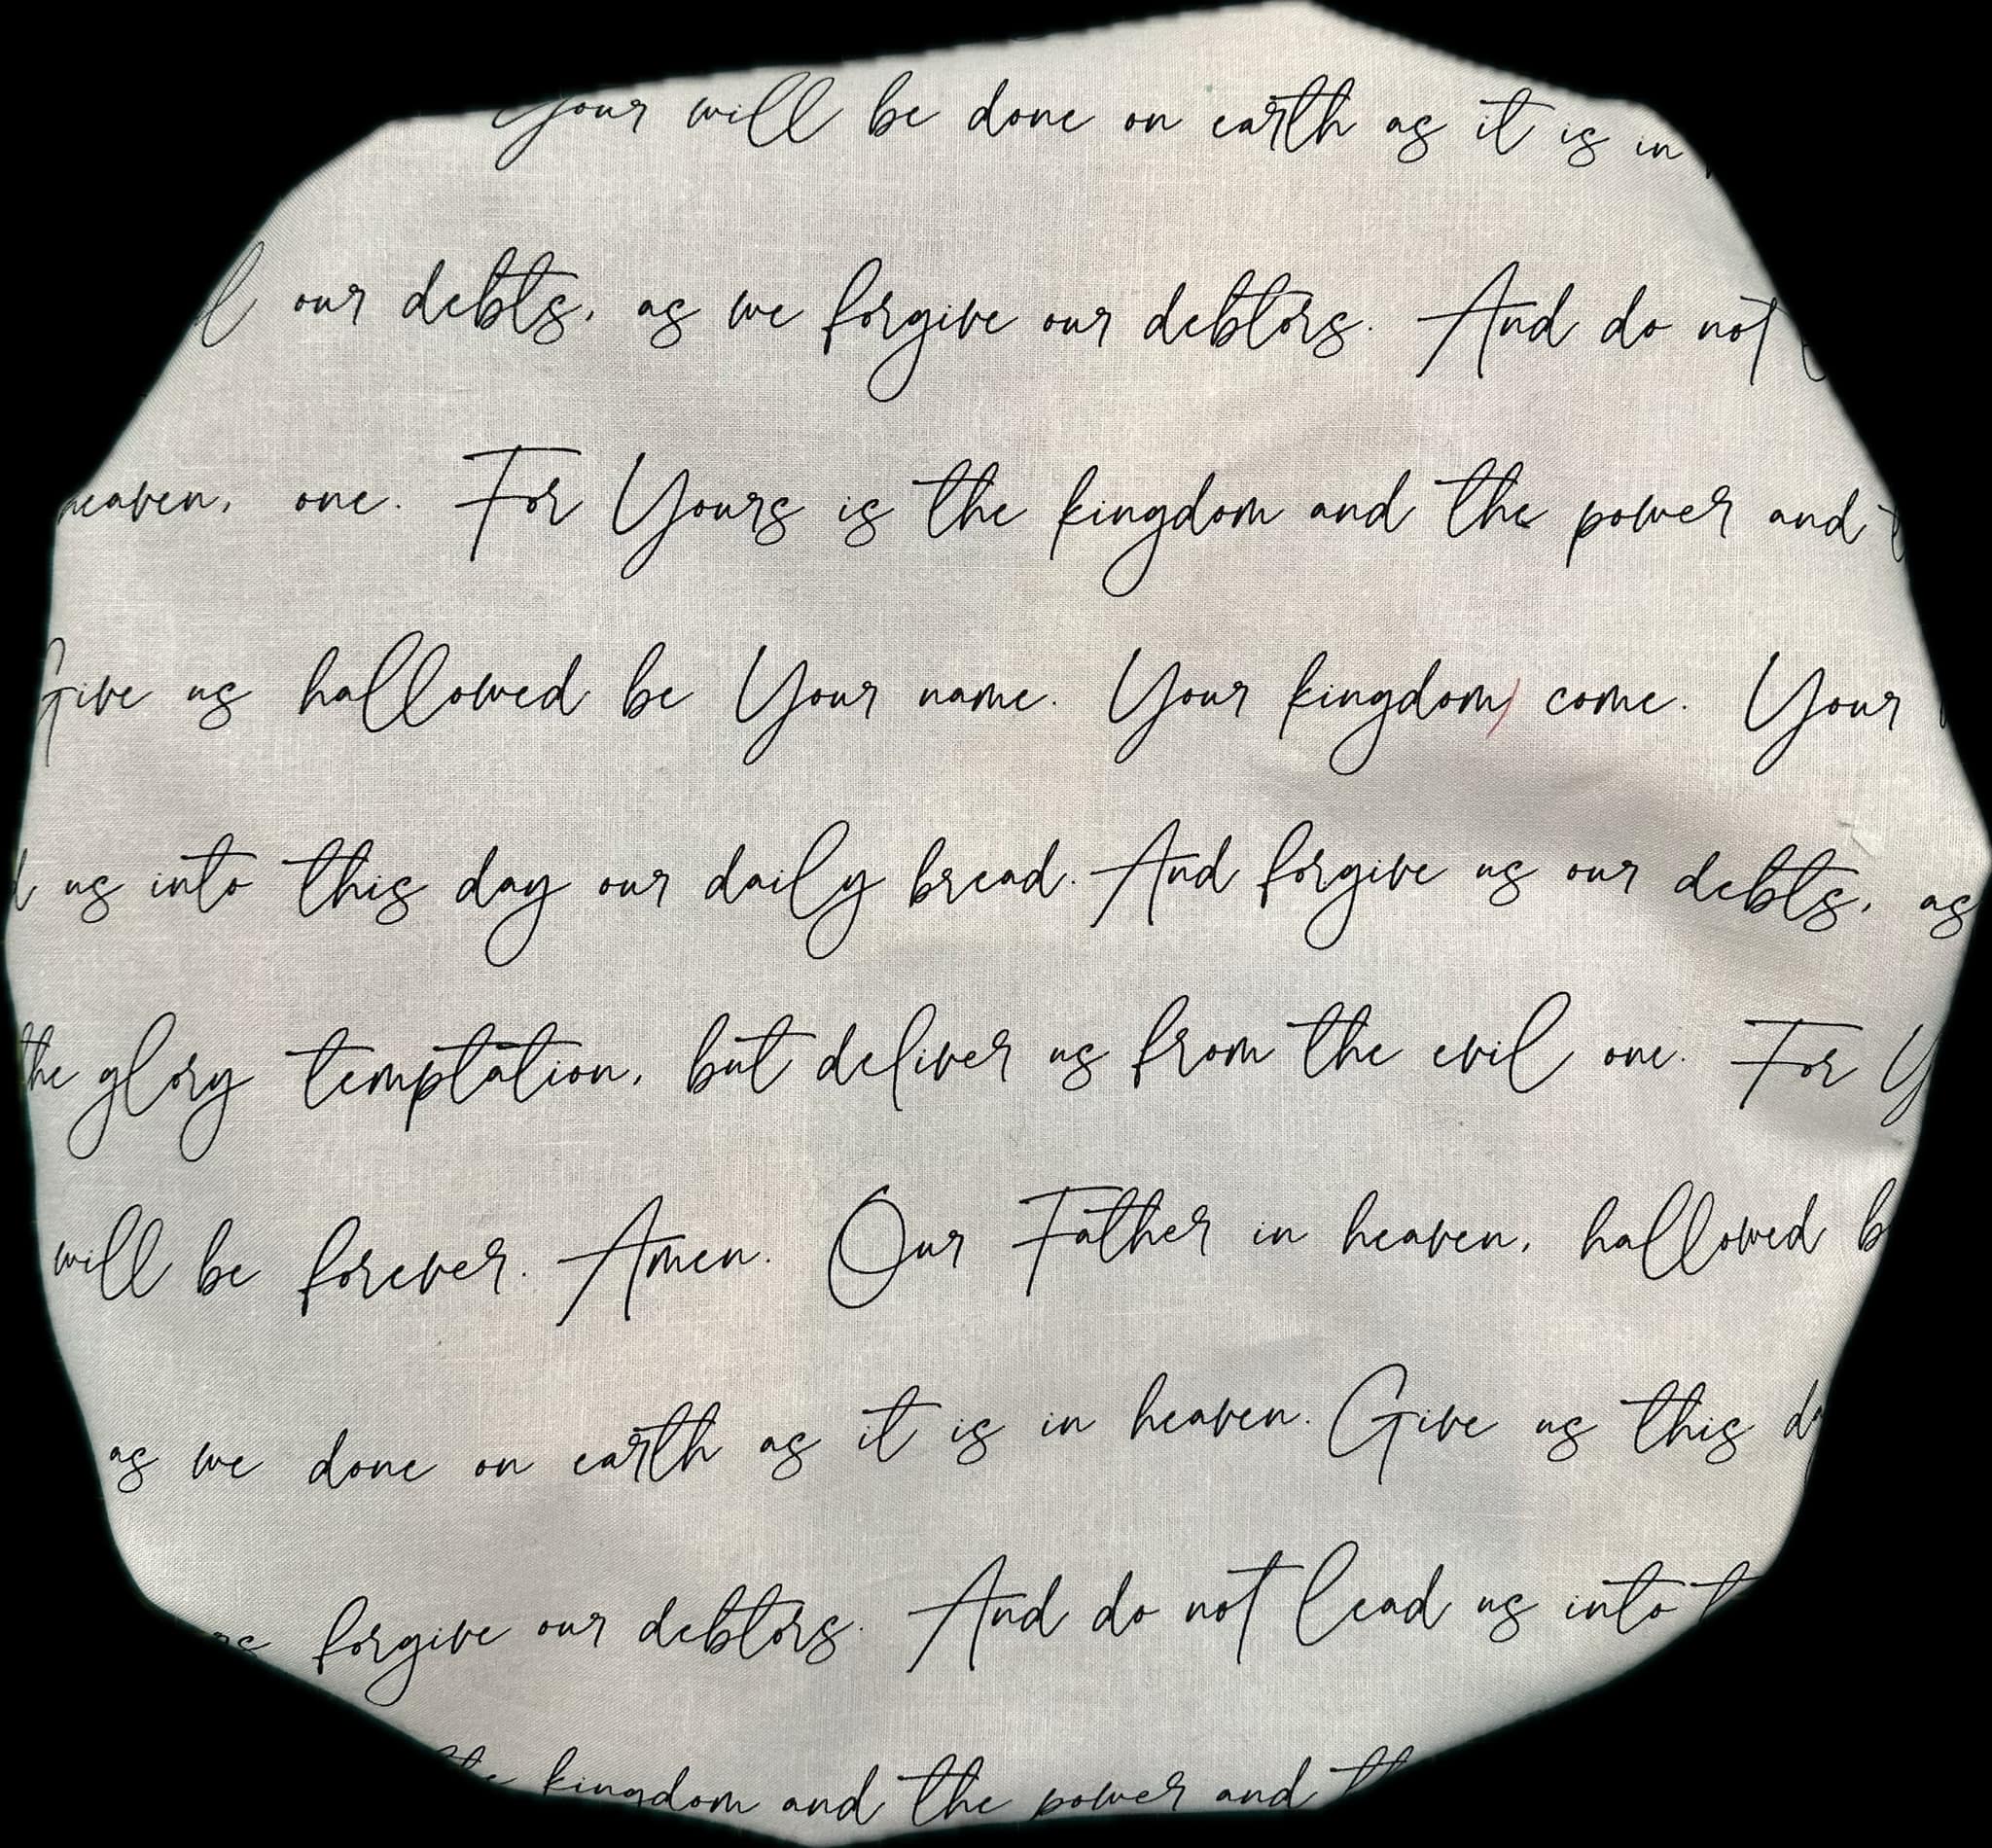 Your will be done on earth as it is in
our debts, as we forgive our debtors. And do not
heaven, one. For Yours is the kingdom and the power and
Give us hallowed be Your name. Your kingdom come. Your
us into this day our daily bread. And forgive us our debts, as
the glory temptation, but deliver us from the evil one. For Y
will be forever. Amen. Our Father in heaven, hallowed b
as we done on earth as it is in heaven. Give us this d
forgive our debtors. And do not lead us into t
kingdom and the power and th